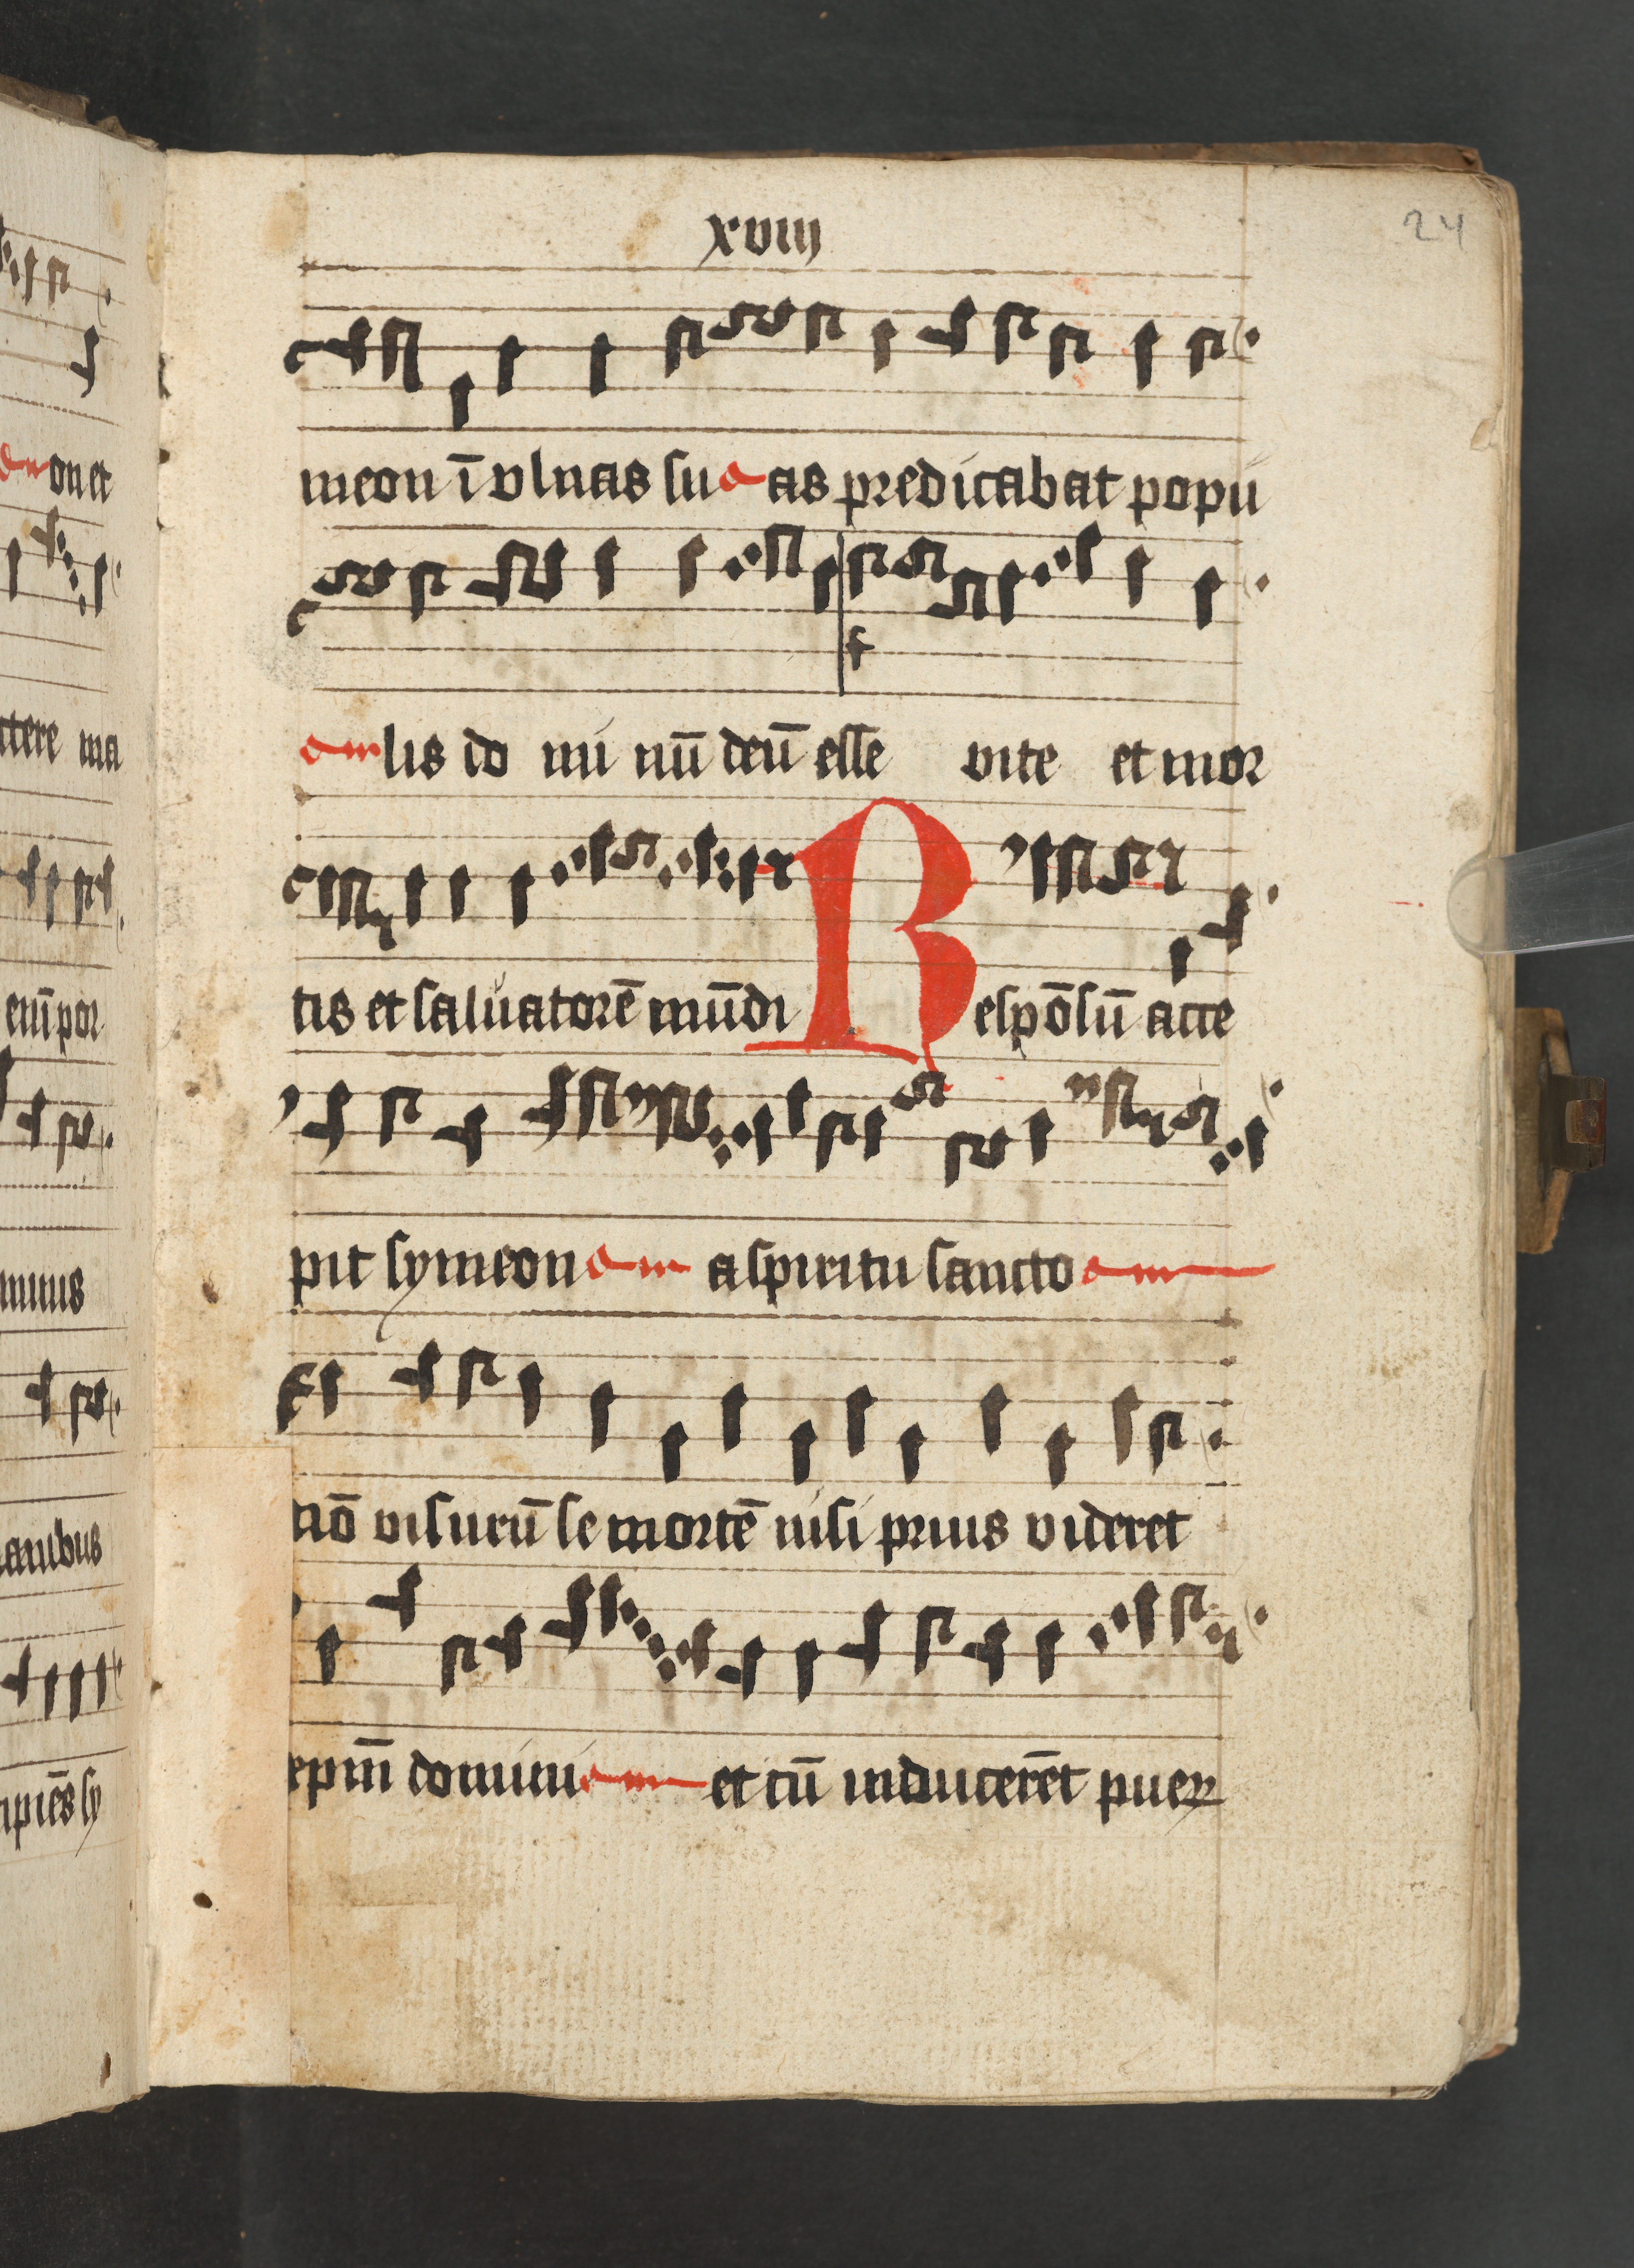 xviij
24
meon ī vlnas su as predicabat popu
lis do mi nū deū esse vite et mor
tis et saluatorē mūdi Respōsū acce
pit symeon a spiritu sancto
nō visurū se mortē nisi prius videret
xpm̄ domini et cū inducerēt pueꝝ
on et
ttere ma
enī por
minus
anibus
ipiēs sy
f